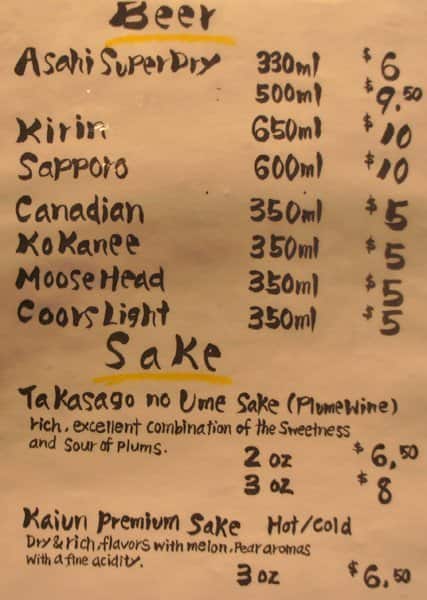 Beer
Asahi SuperDry 330ml $6
500ml $9.50
Kirin 650ml $10
Sapporo 600ml $10
Canadian 350ml $5
KoKanee 350ml $5
MooseHead 350ml $5
Coors Light 350ml $5
Sake
Takasago no Ume Sake (Plumewine)
rich, excellent combination of the Sweetness
and Sour of Plums.
2 oz $6.50
3 oz $8
Kaiun Premium Sake Hot/Cold
Dry & rich, flavors with melon, Pear aromas
with a fine acidity.
3 oz $6.50